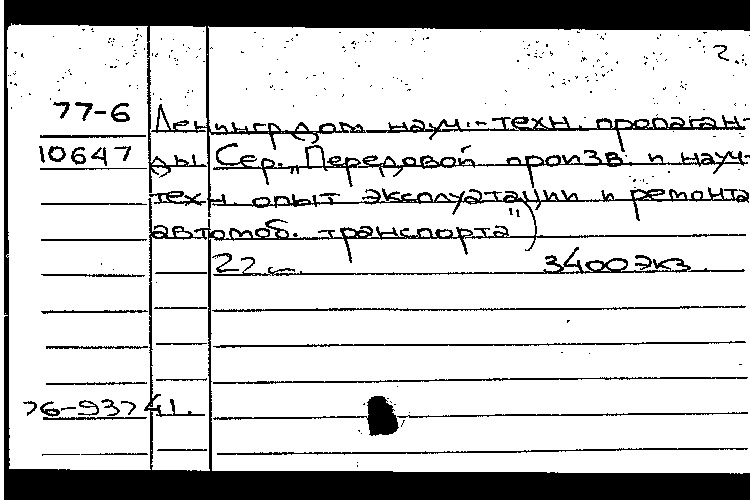 2
77-6 Ленингр. дом науч.-техн. пропаган-
10647 ды. Сер. "Передовой произв. и науч-
техн. опыт эксплуатации и ремонта
автомоб. транспорта")
22 с. 3400 экз.
76-93741.